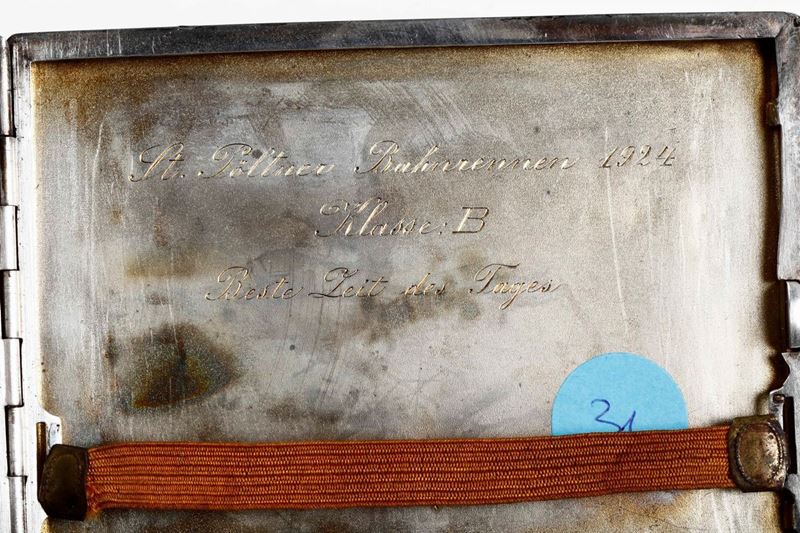 St. Pöltner Bahnrennen 1924
Klasse: B
Beste Zeit des Tages
31